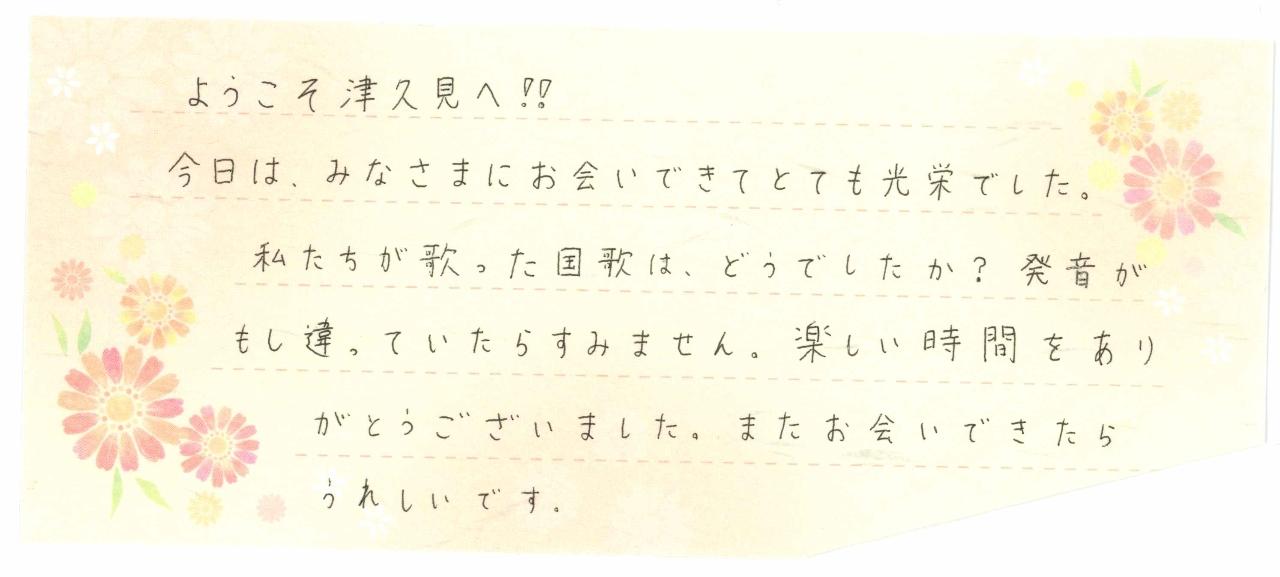 ようこそ津久見へ!!
今日は、みなさまにお会いできてとても光栄でした。
私たちが歌った国歌は、どうでしたか? 発音が
もし違っていたらすみません。楽しい時間をあり
がとうございました。またお会いできたら
うれしいです。